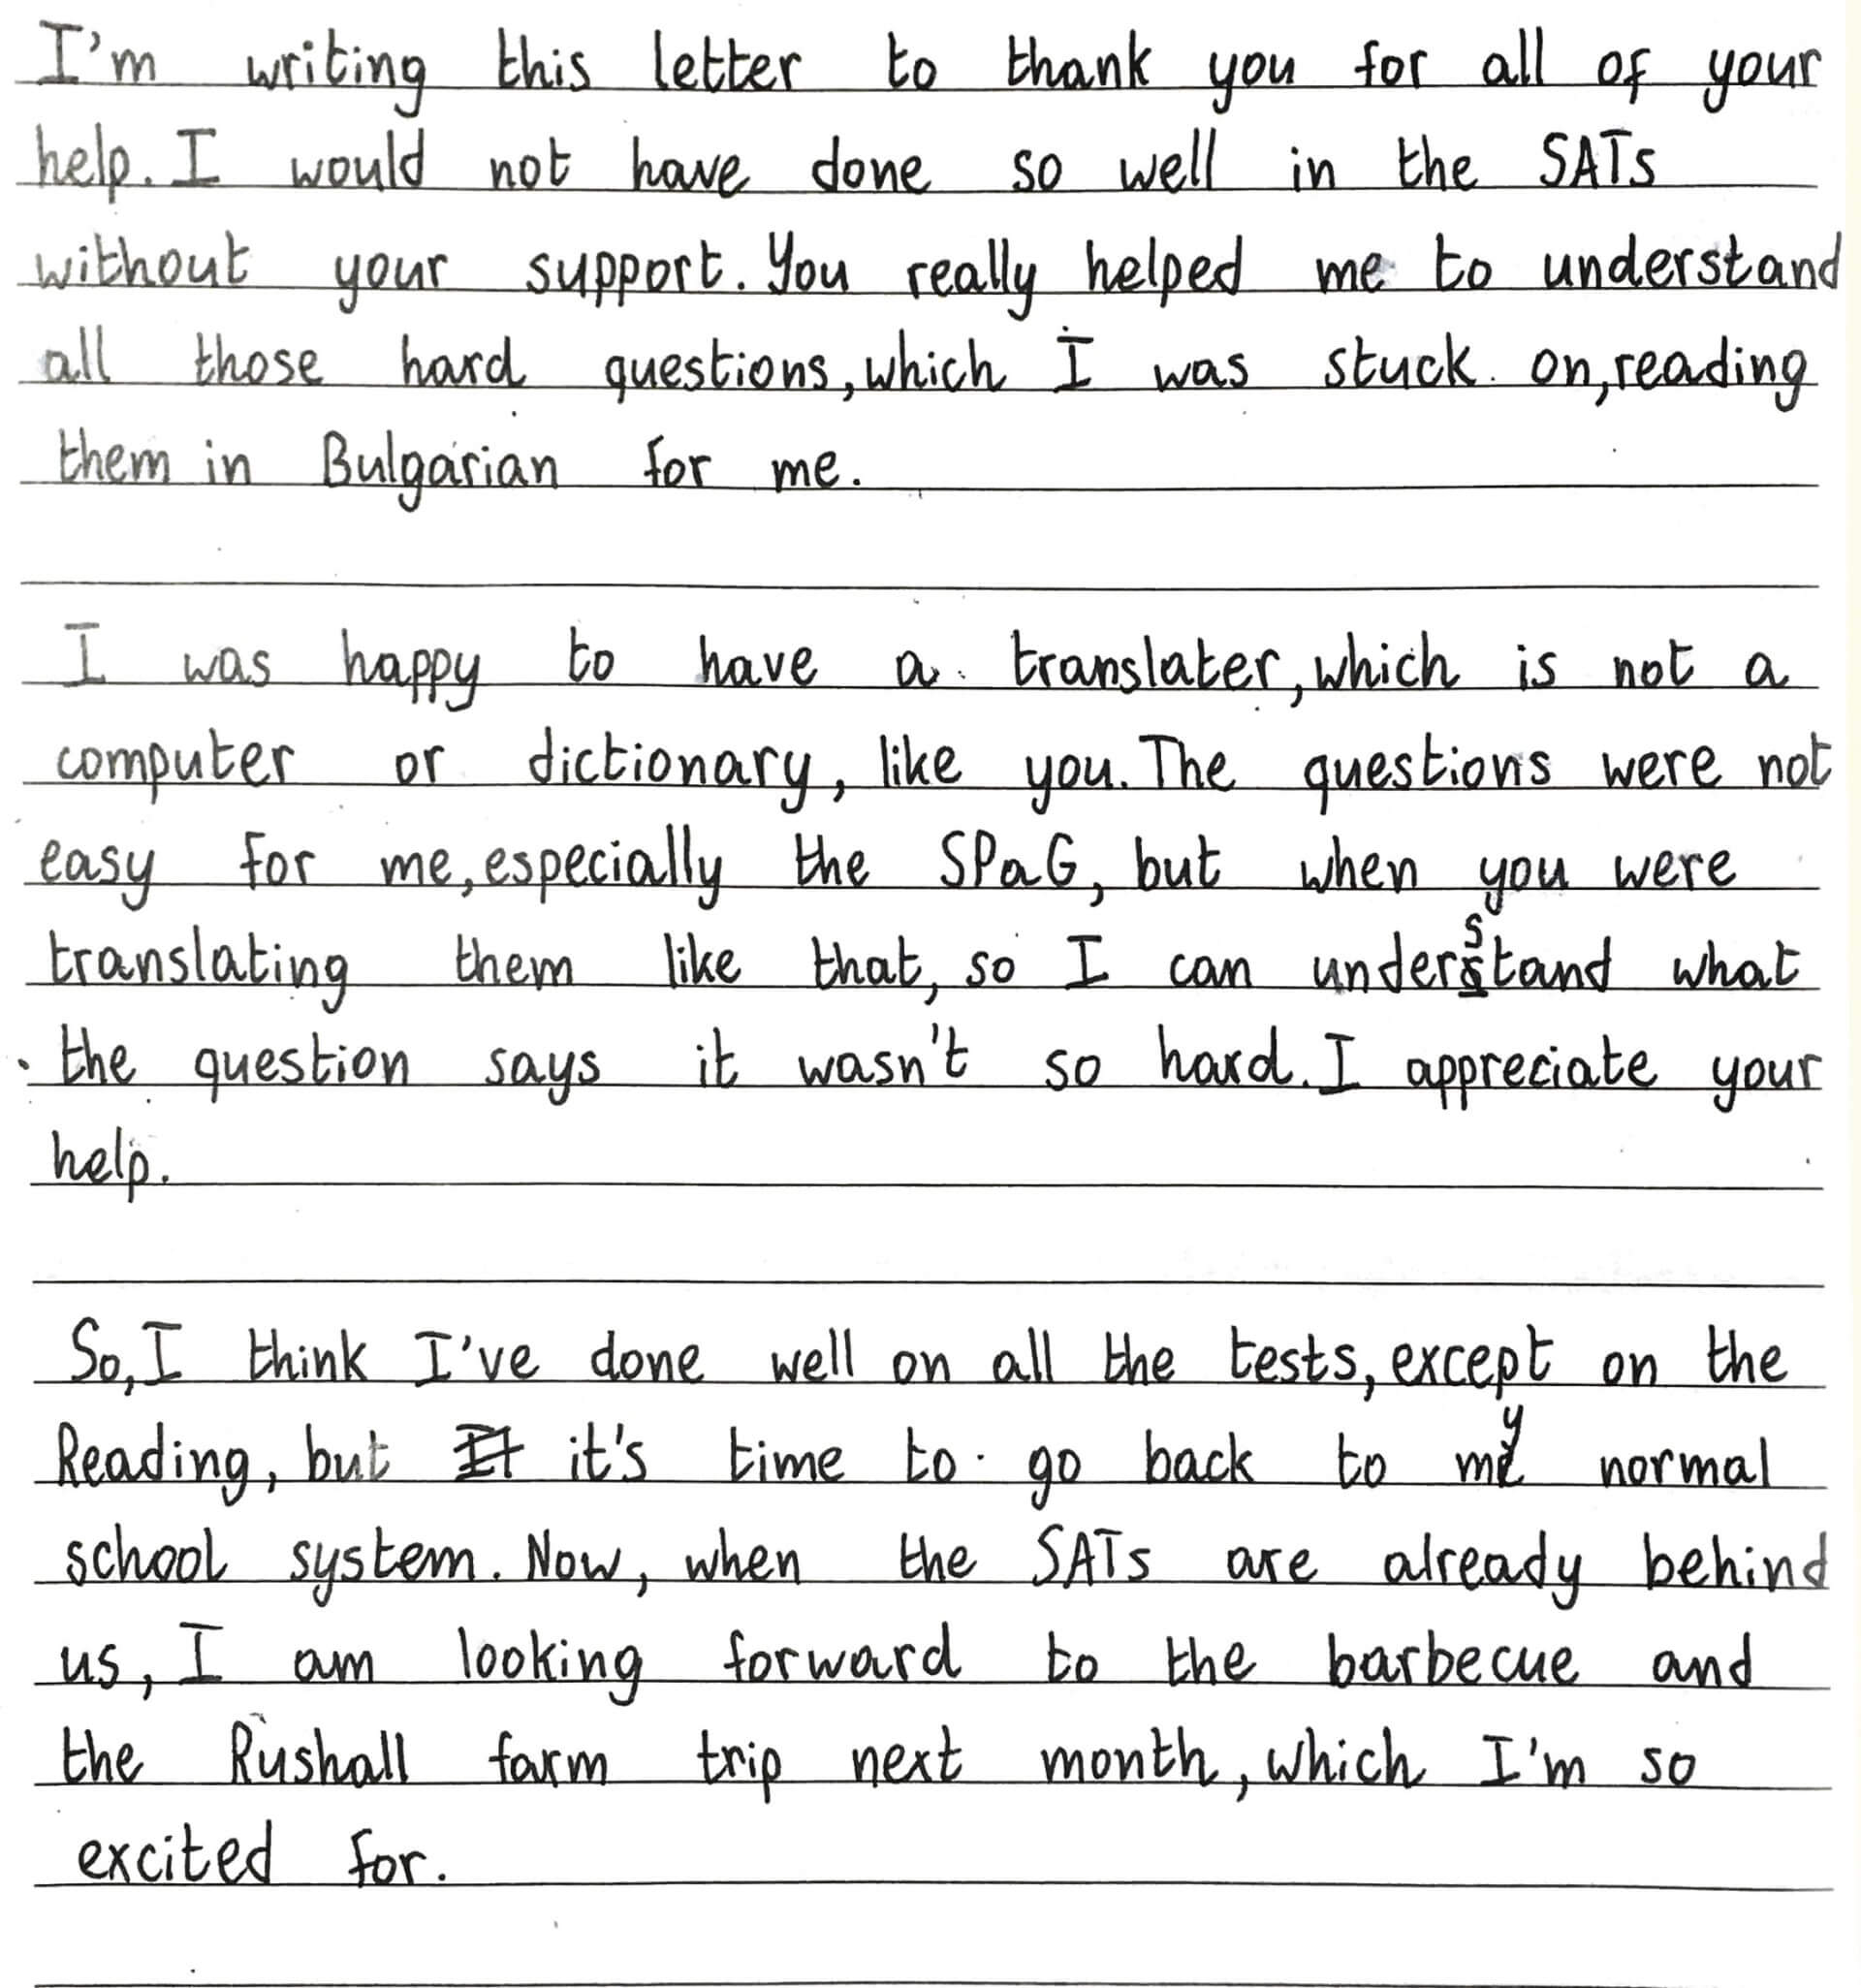 I'm writing this letter to thank you for all of your
help. I would not have done so well in the SATs
without your support. You really helped me to understand
all those hard questions, which I was stuck on, reading
them in Bulgarian for me.
I was happy to have a translater, which is not a
computer or dictionary, like you. The questions were not
easy for me, especially the SPaG, but when you were
translating them like that, so I can understand what
the question says it wasn't so hard. I appreciate your
help.
So, I think I've done well on all the tests, except on the
Reading, but It it's time to go back to my normal
school system. Now, when the SATs are already behind
us, I am looking forward to the barbecue and
the Rushall farm trip next month, which I'm so
excited for.